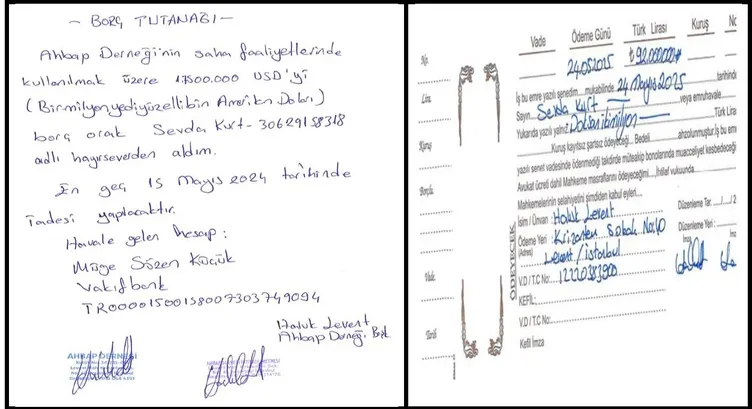 - BORÇ TUTANAĞI -
Ahbap Derneği'nin saha faaliyetlerinde
kullanılmak üzere 1.7500.000 USD'yi
(Birmilyonyediyüzellibin Amerikan Doları)
borç olarak Sevda Kurt - 30629158318
adlı hayırseverden aldım.
En geç 15 Mayıs 2024 tarihinde
iadesi yapılacaktır.
Havale gelen hesap:
Müge Sözen Küçük
Vakıfbank
TR00001500158007303749094
Haluk Levent
Ahbap Derneği Bşk.
AHBAP DERNEĞİ
Vade Ödeme Günü Türk Lirası Kuruş No
24.05.2025 ₺92.000.000#
İş bu emre yazılı senedim... mukabilinde 24 Mayıs 2025 tarihinde
Sayın Sevda Kurt veya emruhavale
Yukarıda yazılı yalnız Doksanikimilyon Türk Lira
Kuruş kayıtsız şartsız ödeyeceğ... Bedeli ahzolunmuştur. İş bu em
yazılı senet vadesinde ödenmediği takdirde müteakip bonolarında muacceliyet kesbedeceği
Avukat ücreti dahil Mahkeme masraflarını ödeyeceğimi... İhtilaf vukuunda
Mahkemelerinin selahiyetini şimdiden kabul eyleri...
İsim / Ünvan : Haluk Levent
Düzenleme Tar. ..../..../2
Ödeme Yeri : Krizantem Sokak No:40
(Adres)
Levent / İstanbul
Düzenleme Yeri :
İmza
V.D / T.C No: 12220383900
KEFİL:
V.D / T.C No:
Kefil İmza
ÖDEYECEK